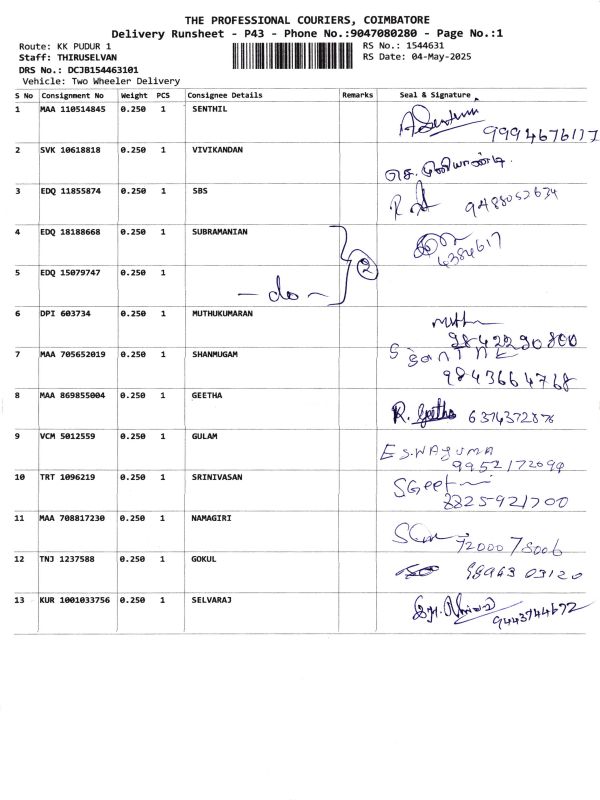 THE PROFESSIONAL COURIERS, COIMBATORE
Delivery Runsheet - P43 - Phone No.:9047080280 - Page No.:1
Route: KK PUDUR 1 RS No.: 1544631
Staff: THIRUSELVAN RS Date: 04-May-2025
DRS No.: DCJB154463101
Vehicle: Two Wheeler Delivery
S No Consignment No Weight PCS Consignee Details Remarks Seal & Signature
1 MAA 110514845 0.250 1 SENTHIL
2 SVK 10618818 0.250 1 VIVIKANDAN
3 EDQ 11855874 0.250 1 SBS 9488052634
4 EDQ 18188668 0.250 1 SUBRAMANIAN 2 4384617
5 EDQ 15079747 0.250 1 - do -
6 DPI 603734 0.250 1 MUTHUKUMARAN 9842290800
7 MAA 705652019 0.250 1 SHANMUGAM 9843664768
8 MAA 869855004 0.250 1 GEETHA R. Geetha 6374372876
9 VCM 5012559 0.250 1 GULAM ESWAYUMA
9952172094
10 TRT 1096219 0.250 1 SRINIVASAN SGeet
8825921700
11 MAA 708817230 0.250 1 NAMAGIRI 7200078006
12 TNJ 1237588 0.250 1 GOKUL 98943 03120
13 KUR 1001033756 0.250 1 SELVARAJ 9443744672